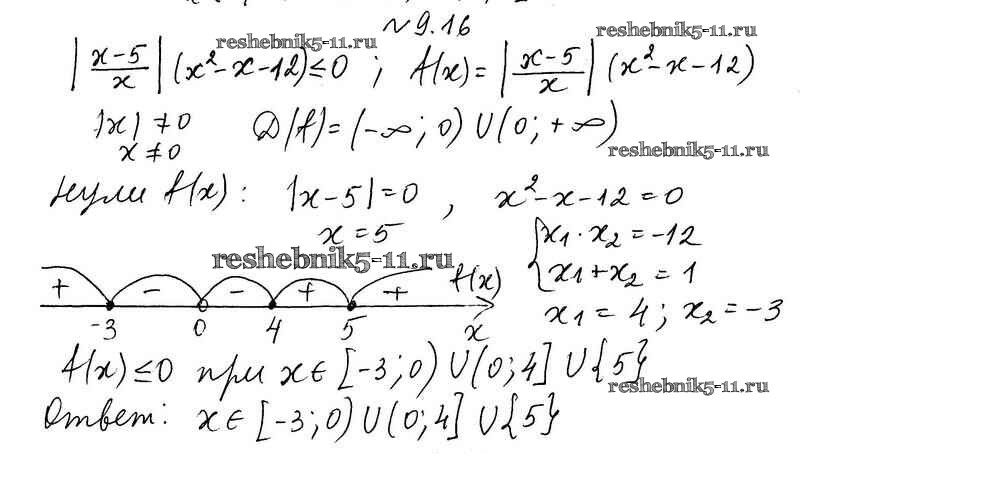 №9.16
reshebnik5-11.ru reshebnik5-11.ru
|x-5/x| (x²-x-12)≤0 ; f(x)= |x-5/x| (x²-x-12)
|x| ≠0 D(f)=(-∞; 0) U (0; +∞)
x≠0 reshebnik5-11.ru
Нули f(x): |x-5|=0 , x²-x-12=0
x=5 {x₁·x₂=-12
reshebnik5-11.ru
x₁+x₂=1
+ - - + + f(x)
x₁=4; x₂=-3
-3 0 4 5 x
f(x)≤0 при x∈[-3;0) U (0;4] U {5}
reshebnik5-11.ru
Ответ: x∈[-3;0) U (0;4] U {5}